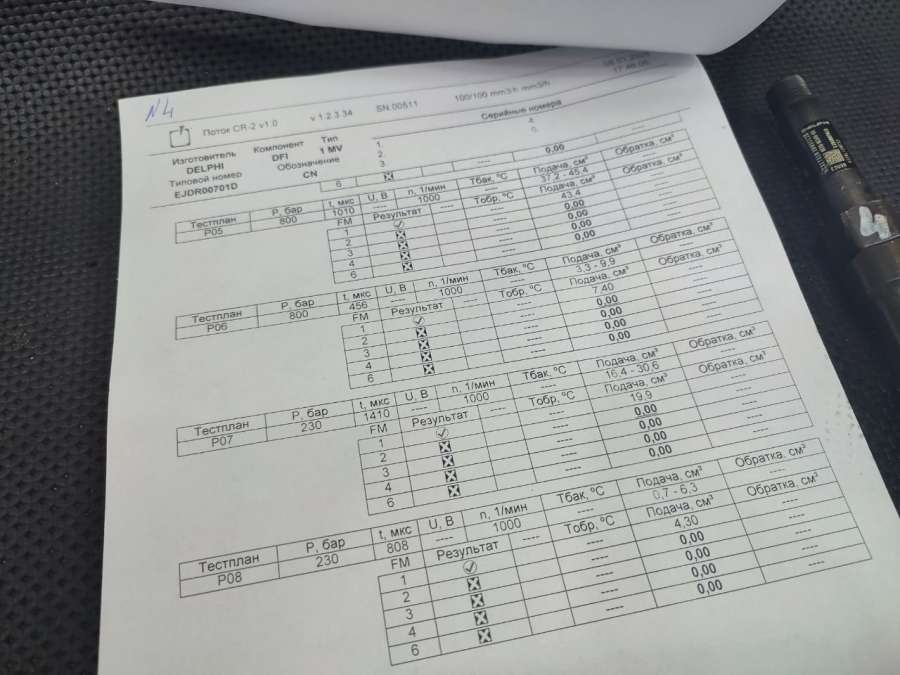 N4
Поток CR-2 v1.0 v 1.2.3.34 SN.00511 100/100 mm3/H mm3/N
17:48:06
Изготовитель Компонент Тип Серийные номера
DELPHI DFI 1 MV 1. 4.
Типовой номер Обозначение 2. 0.
EJDR00701D CN 3.
6 ---- 0,00 ----
Тестплан P, бар t, мкс U, В n, 1/мин Tбак, ºC Подача, см³ Обратка, см³
P05 800 1010 ---- 1000 ---- 37,2 - 45,4 ----
FM Результат Tобр, ºC Подача, см³ Обратка, см³
1 ---- 43,4 ----
2 ---- 0,00 ----
3 ---- 0,00 ----
4 ---- 0,00 ----
6 ---- 0,00 ----
Тестплан P, бар t, мкс U, В n, 1/мин Tбак, ºC Подача, см³ Обратка, см³
P06 800 456 ---- 1000 ---- 3,3 - 9,9 ----
FM Результат Tобр, ºC Подача, см³ Обратка, см³
1 ---- 7,40 ----
2 ---- 0,00 ----
3 ---- 0,00 ----
4 ---- 0,00 ----
6 ---- 0,00 ----
Тестплан P, бар t, мкс U, В n, 1/мин Tбак, ºC Подача, см³ Обратка, см³
P07 230 1410 ---- 1000 ---- 16,4 - 30,6 ----
FM Результат Tобр, ºC Подача, см³ Обратка, см³
1 ---- 19,9 ----
2 ---- 0,00 ----
3 ---- 0,00 ----
4 ---- 0,00 ----
6 ---- 0,00 ----
Тестплан P, бар t, мкс U, В n, 1/мин Tбак, ºC Подача, см³ Обратка, см³
P08 230 808 ---- 1000 ---- 0,7 - 6,3 ----
FM Результат Tобр, ºC Подача, см³ Обратка, см³
1 ---- 4,30 ----
2 ---- 0,00 ----
3 ---- 0,00 ----
4 ---- 0,00 ----
6 ---- 0,00 ----